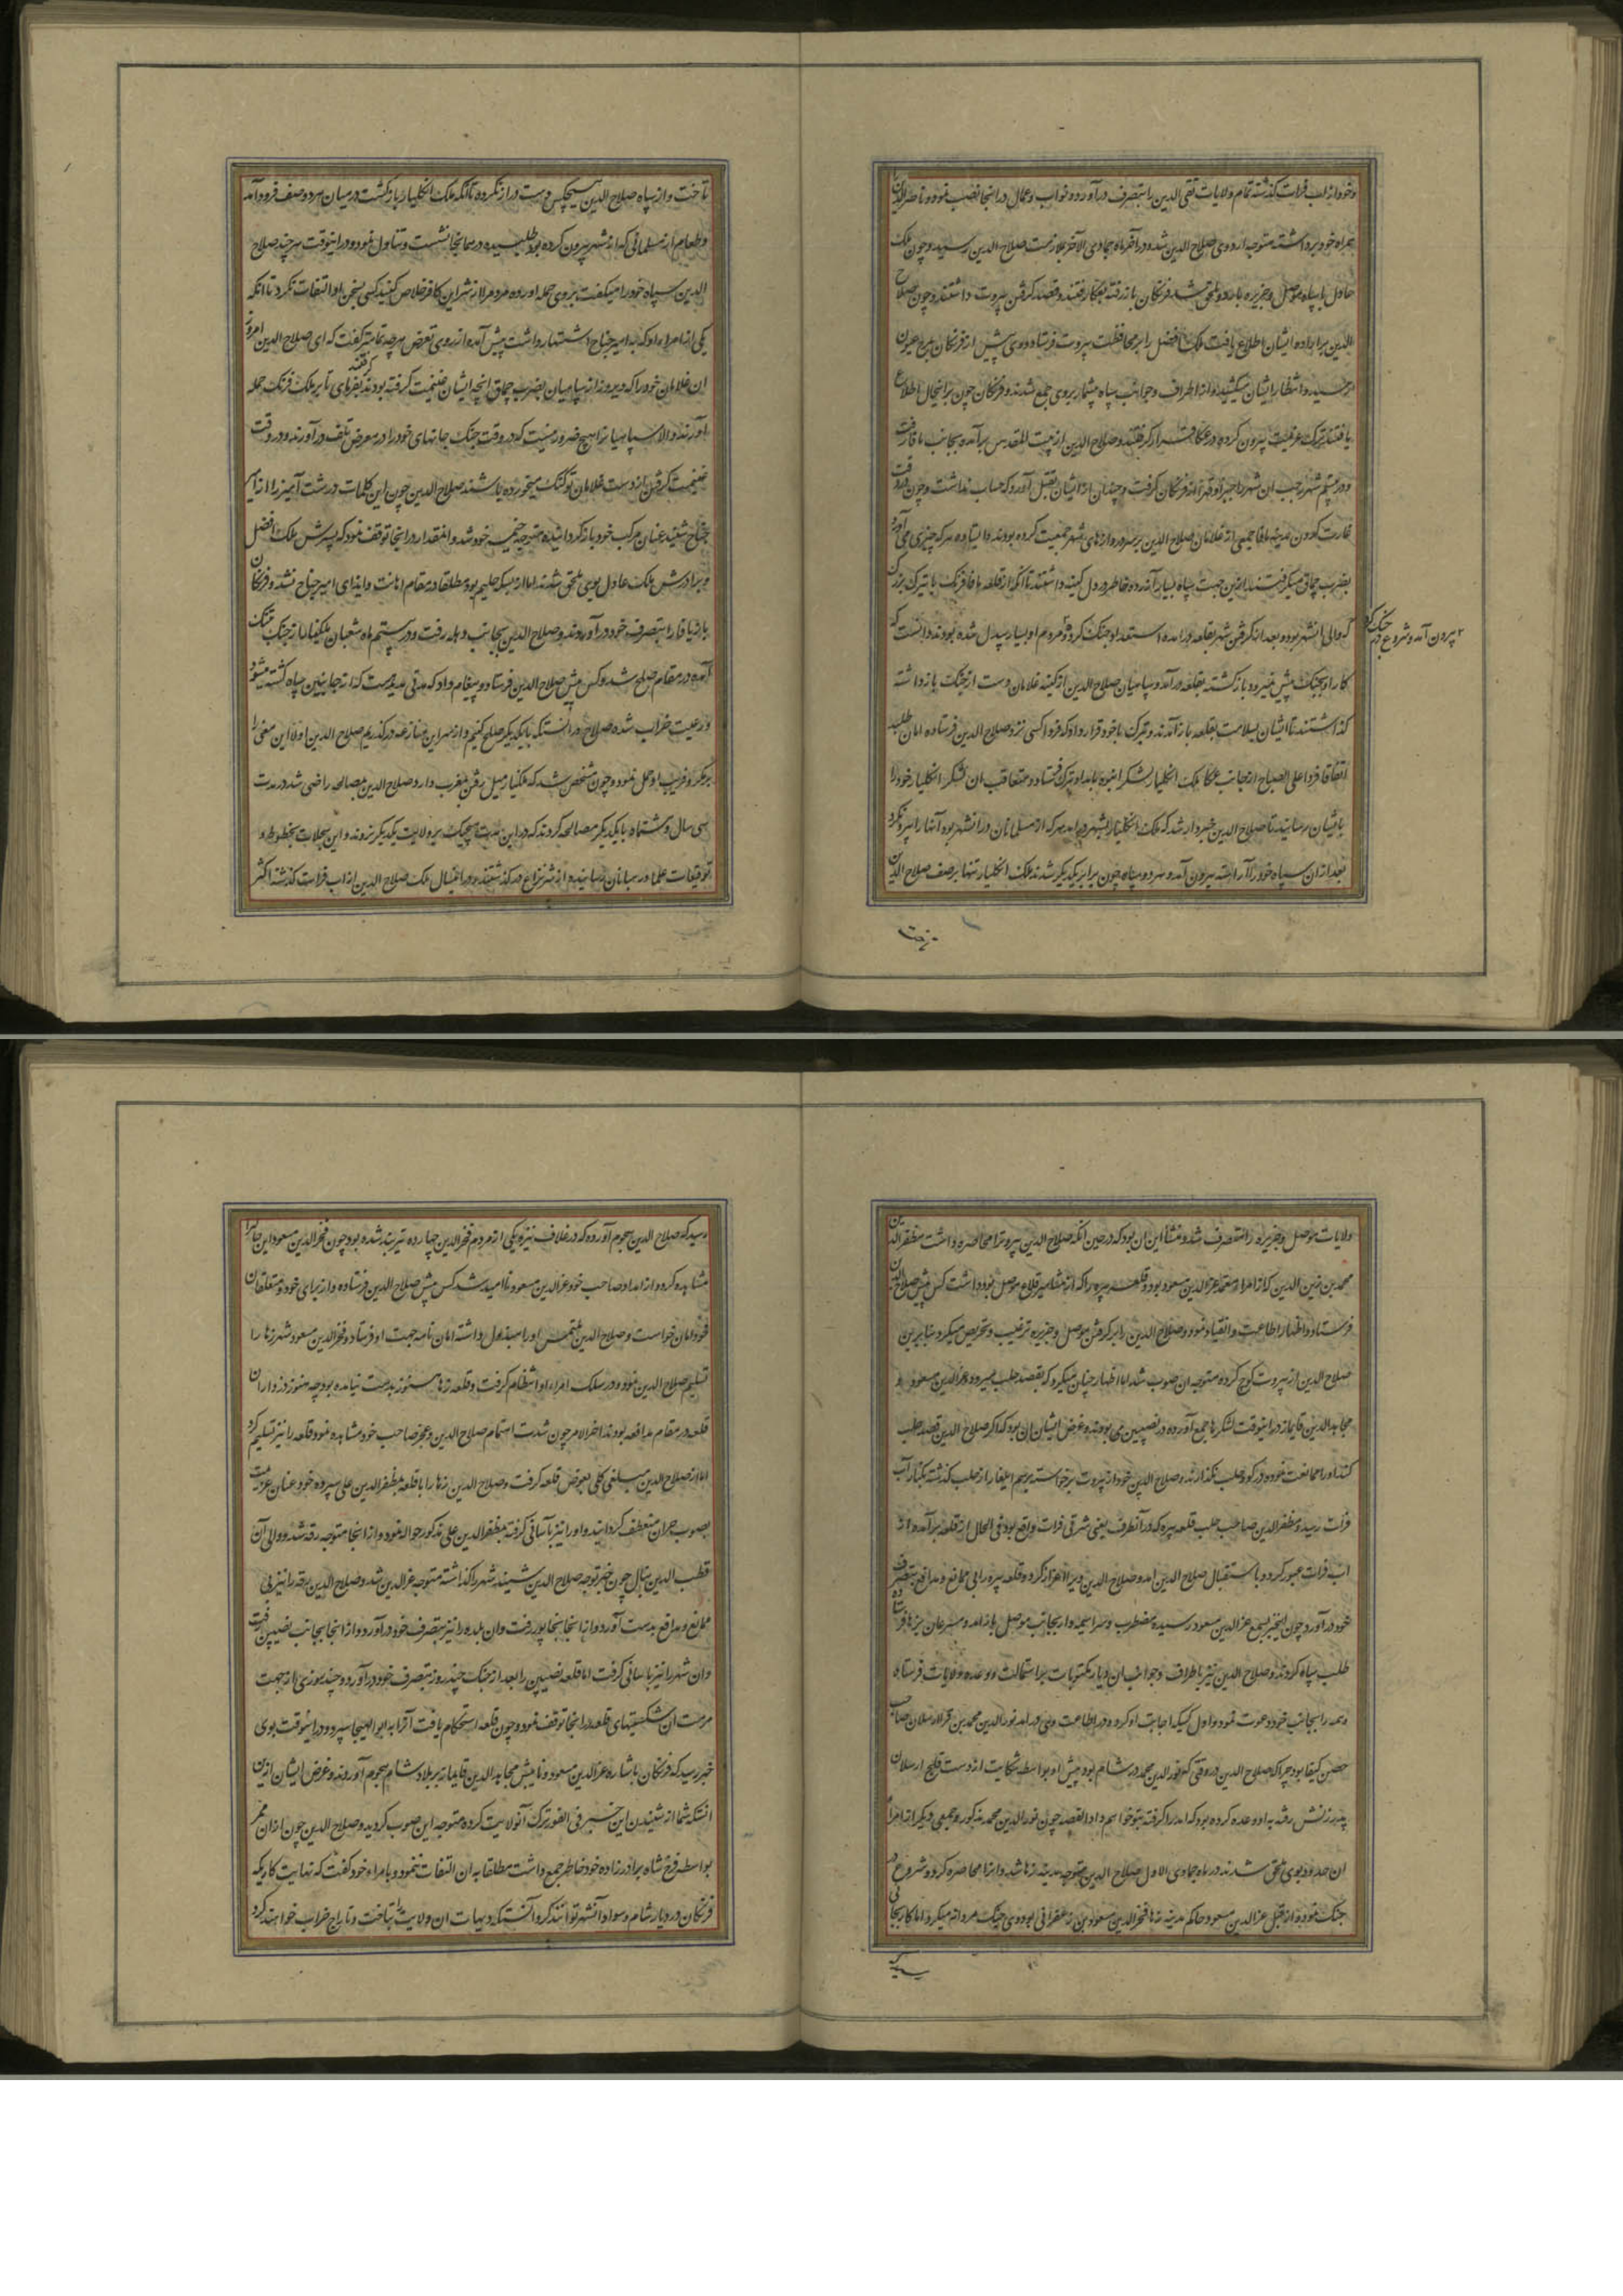 وخود از اب فرات گذشته تمام ولایات تقی الدین را بتصرف درآورد و نواب و عمال در انجا نصب نمود و ناصر الدین را
همراه خود برداشته متوجه اردوی صلاح الدین شد و در آخر ماه جمادی الآخر بملازمت صلاح الدین رسید و چون ملک
عادل با سپاه موصل و جزیره باردو ملحق شد فرنگان باز رفته بعکا رفتند و قصد گرفتن بیروت داشتند و چون صلاح
الدین بر اراده ایشان اطلاع یافت ملک افضل را بر محافظت بیروت فرستاد و وی پیش از فرنگان بمرج عیون
رسید و انتظار ایشان میکشید و از اطراف و جوانب سپاه بیشمار بروی جمع شدند و فرنگان چون برانحال اطلاع
یافتند ترک عزیمت بیرون کرده در عکا قرار گرفتند و صلاح الدین از بیت المقدس برآمده بجانب یافا رفت
و در بیستم شهر رجب ان شهر را جبرا و قهرا از فرنگان گرفت و چندان از ایشان بقتل آورد که حساب نداشت و چون وقت
غارت کردن مدینه یافا جمعی از غلامان صلاح الدین بر سر دروازهای شهر جمعیت کرده بودند و ایستاده هر که چیزی می آورد
بضرب چماق میگرفتند ازین جهت سپاه بسیار آزرده خاطر و در دل کینه داشتند تا آنکه از قلعه یافا فرنگ با تیرک بزرگ
که والی انشهر بود و بعد از گرفتن شهر بقلعه درامده استعداد جنگ کرد و مردم او بسیار بیدل شده بودند دانست که
بیرون آمد و شروع در جنگ کرد
کار او بجنگ پیش نمیرود بازگشته بقلعه درآمد و سپاهیان صلاح الدین از کینه غلامان دست از جنگ بازداشته
گذاشتند تا ایشان بسلامت بقلعه باز آمدند و تیرک باخود قرار داد که فردا کسی نزد صلاح الدین فرستاده امان طلبد
اتفاقا فردا علی الصباح از جانب عکا ملک انکلیار لشکر انبوه بامداد تیرک فرستاد و متعاقب ان لشکر انکلیار خود را
بایشان رسانید تا صلاح الدین خبردار شد که ملک انکلیار بشهر درامد هر که از مسلمانان در انشهر بود آنها را بیرون کرد
بعد ازان سپاه خود را آراسته بیرون آمد و هر دو سپاه چون برابر یکدیگر شدند ملک انکلیار تنها بر صف صلاح الدین
تاخت
تاخت و از سپاه صلاح الدین هیچکس دست دراز نکرده تا آنکه ملک انکلیار بازگشت در میان هر دو صف فرود آمد
و طعام از مسلمانی که از شهر بیرون کرده بود طلبیده در همانجا نشست و تناول نمود و در اینوقت هر چند صلاح
الدین سپاه خود را میگفت بروی حمله اورده مردم را از شر این کافر خلاص کنید کسی بسخن او التفات نکرد تا انکه
یکی از امراء او که به امیر جناح اشتهار داشت پیش آمد و از روی تعرض هر چه تمامتر گفت که ای صلاح الدین امروز
ان غلامان خود را که دیروز از سپاهیان بضرب چماق انچه ایشان غنیمت گرفته بودند گرفتند بفرمای تا بر ملک فرنگ حمله
آورند والا سپاهیانرا هیچ ضرور نیست که در وقت جنگ جانهای خود را در معرض تلف درآورند و در وقت
غنیمت گرفتن از دست غلامان تو کتک میخورده باشند صلاح الدین چون این کلمات درشت آمیز را از امیر
جناح شنید عنان مرکب خود بازگردانیده متوجه خیمه خود شد و انمقدار در انجا توقف نمود که پسرش ملک افضل
و برادرش ملک عادل بوی ملحق شدند اما از بسکه حلیم بود مطلقا در مقام اهانت و ایذای امیر جناح نشد و فرنگان
باز یافا را بتصرف خود درآوردند و صلاح الدین بجانب رمله رفت و در بیستم ماه شعبان ملکنیار از جنگ بتنگ
آمده در مقام صلح شد و کس پیش صلاح الدین فرستاد و پیغام داد که مدتی مدید است که از جانبین سپاه کشته میشود
و رعیت خراب شده صلاح در آنست که با یکدیگر صلح کنیم و از سر این منازعه درگذریم صلاح الدین اولا این معنی را
بر مکر و فریب او حمل نمود و چون مشخص شد که ملکنیار میل رفتن بمغرب دارد صلاح الدین بمصالحه راضی شد در مدت
سی سال و هشت ماه با یکدیگر مصالحه کردند که در این مدت هیچیک بر ولایت یکدیگر نروند و این سجلات بخطوط و
توقیعات علما در میانه رسانیده از شر نزاع درگذشتند و در اینسال ملک صلاح الدین از اب فرات گذشته اکثر
ولایات موصل و جزیره را متصرف شد و منشأ این ان بود که در حین آنکه صلاح الدین بیروترا محاصره داشت مظفر الدین
محمد بن زین الدین که از امراء معتمد عز الدین مسعود بود و قلعه بیره را که از مشاهیر قلاع موصل بود داشت کس پیش صلاح الدین
فرستاد و اظهار اطاعت و انقیاد نمود و صلاح الدین را بر گرفتن موصل و جزیره ترغیب و تحریص میکرد بنابرین
صلاح الدین از بیروت کوچ کرده متوجه ان صوب شد اما اظهار چنان میکرد که بقصد حلب میرود و عز الدین مسعود و
مجاهد الدین قایماز در اینوقت لشکرها جمع آورده در نصیبین می بودند و غرض ایشان ان بود که اگر صلاح الدین قصد حلب
کند او را ممانعت نموده در گرد حلب نگذارند و صلاح الدین خود از بیروت برخواسته برسم ایلغار از حلب گذشته بکنار آب
فرات رسید و مظفر الدین صاحب حلب قلعه بیره که در آنطرف یعنی شرقی فرات واقع بود فی الحال از قلعه برآمد و از
اب فرات عبور کرده باستقبال صلاح الدین امد و صلاح الدین ویرا اعزاز کرده قلعه بیره را بی ممانع و مدافع بتصرف
خود درآورد و چون اینخبر بسمع عز الدین مسعود رسیده مضطرب و سراسیمه وار بجانب موصل باز امد و مسرعان بهرجا فرستاده
طلب سپاه کردند و صلاح الدین نیز باطراف و جوانب ان دیار مکتوبات بر استمالت و وعده ولایات فرستاد
و همه را بجانب خود دعوت نمود و اول کسیکه اجابت او کرده در اطاعت وی درامد نور الدین محمد بن قرا ارسلان صاحب
حصن کیفا بود چرا که صلاح الدین در وقتی که نور الدین محمد در شام بود پیش او بواسطه شکایت از دست قلیج ارسلان
پدر زنش رفته به او وعده کرده بود که امد را گرفته بتو خواهم داد القصه چون نور الدین محمد مذکور و جمعی دیگر از امراء
ان حدود بوی ملحق شدند در ماه جمادی الاول صلاح الدین متوجه مدینه رها شد و انرا محاصره کرد و شروع در
جنگ نمود و از قبل عز الدین مسعود حاکم مدینه رها فخر الدین مسعود بن زعفرانی بود وی جنگ مردانه میکرد اما کار بجائی
رسید که
رسید که صلاح الدین هجوم آورده که در غلاف نیزه یکی از مردم فخر الدین چهارده تیر بند شده بود چون فخر الدین مسعود این حال را
مشاهده کرد و از امداد صاحب خود عز الدین مسعود ناامید شد کس پیش صلاح الدین فرستاده و از برای خود و متعلقان
خود امان خواست و صلاح الدین ملتمس او را مبذول داشته امان نامه جهت او فرستاد و فخر الدین مسعود شهر رها را
تسلیم صلاح الدین نمود و در سلک امراء او انتظام گرفت و قلعه رها هنوز بدست نیامده بود چه هنوز دزداران
قلعه در مقام مدافعه بودند اخرالامر چون شدت اهتمام صلاح الدین و عجز صاحب خود مشاهده نمود قلعه را نیز تسلیم کرد
اما از صلاح الدین مبلغی کلی بعوض قلعه گرفت و صلاح الدین رها را با قلعه بمظفر الدین علی سپرده خود عنان عزیمت
بصوب حران منعطف گردانید و او را نیز بآسانی گرفته بمظفر الدین علی مذکور حواله نمود و از انجا متوجه رقه شد و والی آن
قطب الدین ینال چون خبر توجه صلاح الدین شنید شهر را گذاشته متوجه عز الدین شد و صلاح الدین رقه را نیز بی
ممانع و مدافع بدست آورد و از انجا بخابور رفت و ان بلده را نیز بتصرف خود درآورد و از انجا بجانب نصیبین رفت
و ان شهر را نیز باسانی گرفت اما قلعه نصیبین را بعد از جنگ چند روز بتصرف خود درآورد و چند روزی از جهت
مرمت ان شکستهای قلعه در انجا توقف نمود و چون قلعه استحکام یافت آنرا به ابو الهیجا سپرد و در اینوقت بوی
خبر رسید که فرنگان باشاره عز الدین مسعود و نایبش مجاهد الدین قایماز بر بلاد شام هجوم آوردند و غرض ایشان ازین
انستکه شما از شنیدن این خبر فی الفور ترک آنولایت کرده متوجه این صوب گردید و صلاح الدین چون ازان ممر
بواسطه فرخ شاه برادرزاده خود خاطر جمع داشت مطلقا به ان التفات ننمود و بامراء خود گفت که نهایت کاریکه
فرنگان در دیار شام و سواد آنشهر توانند کرد آنستکه دیهات ان ولایت را بتاخت و تاراج خراب خواهند کرد